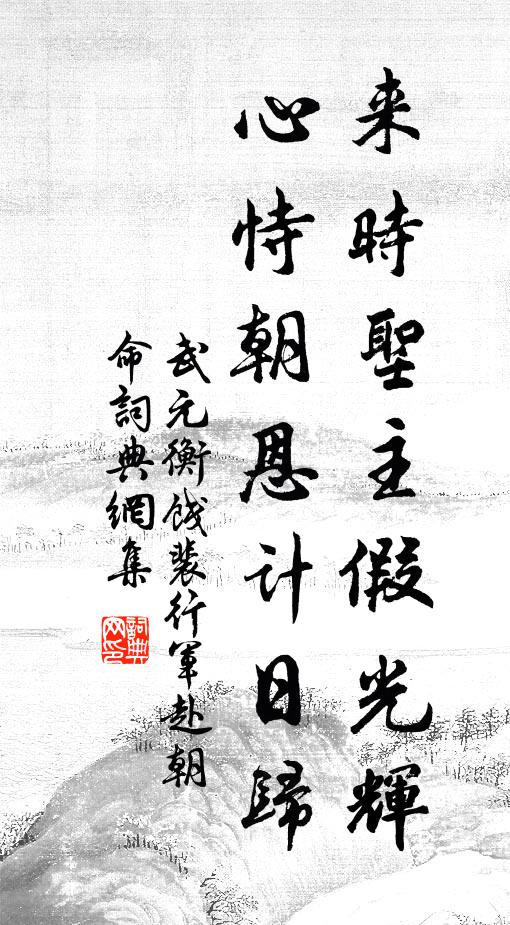 来時聖主假光輝
心恃朝恩計日歸
武元衡餞裴行軍赴朝
命詞典網集
詞典网印